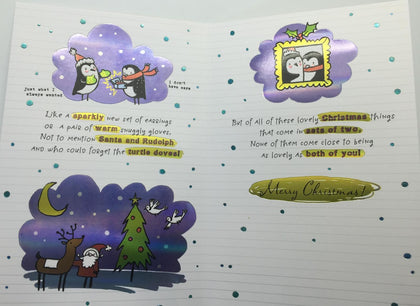 Just what I
always wanted
I don't
have ears
Like a sparkly new set of earrings
or a pair of warm snuggly gloves,
Not to mention Santa and Rudolph
and who could forget the turtle doves!
But of all of these lovely Christmas things
that come in sets of two,
None of them come close to being
as lovely as both of you!
Merry Christmas!